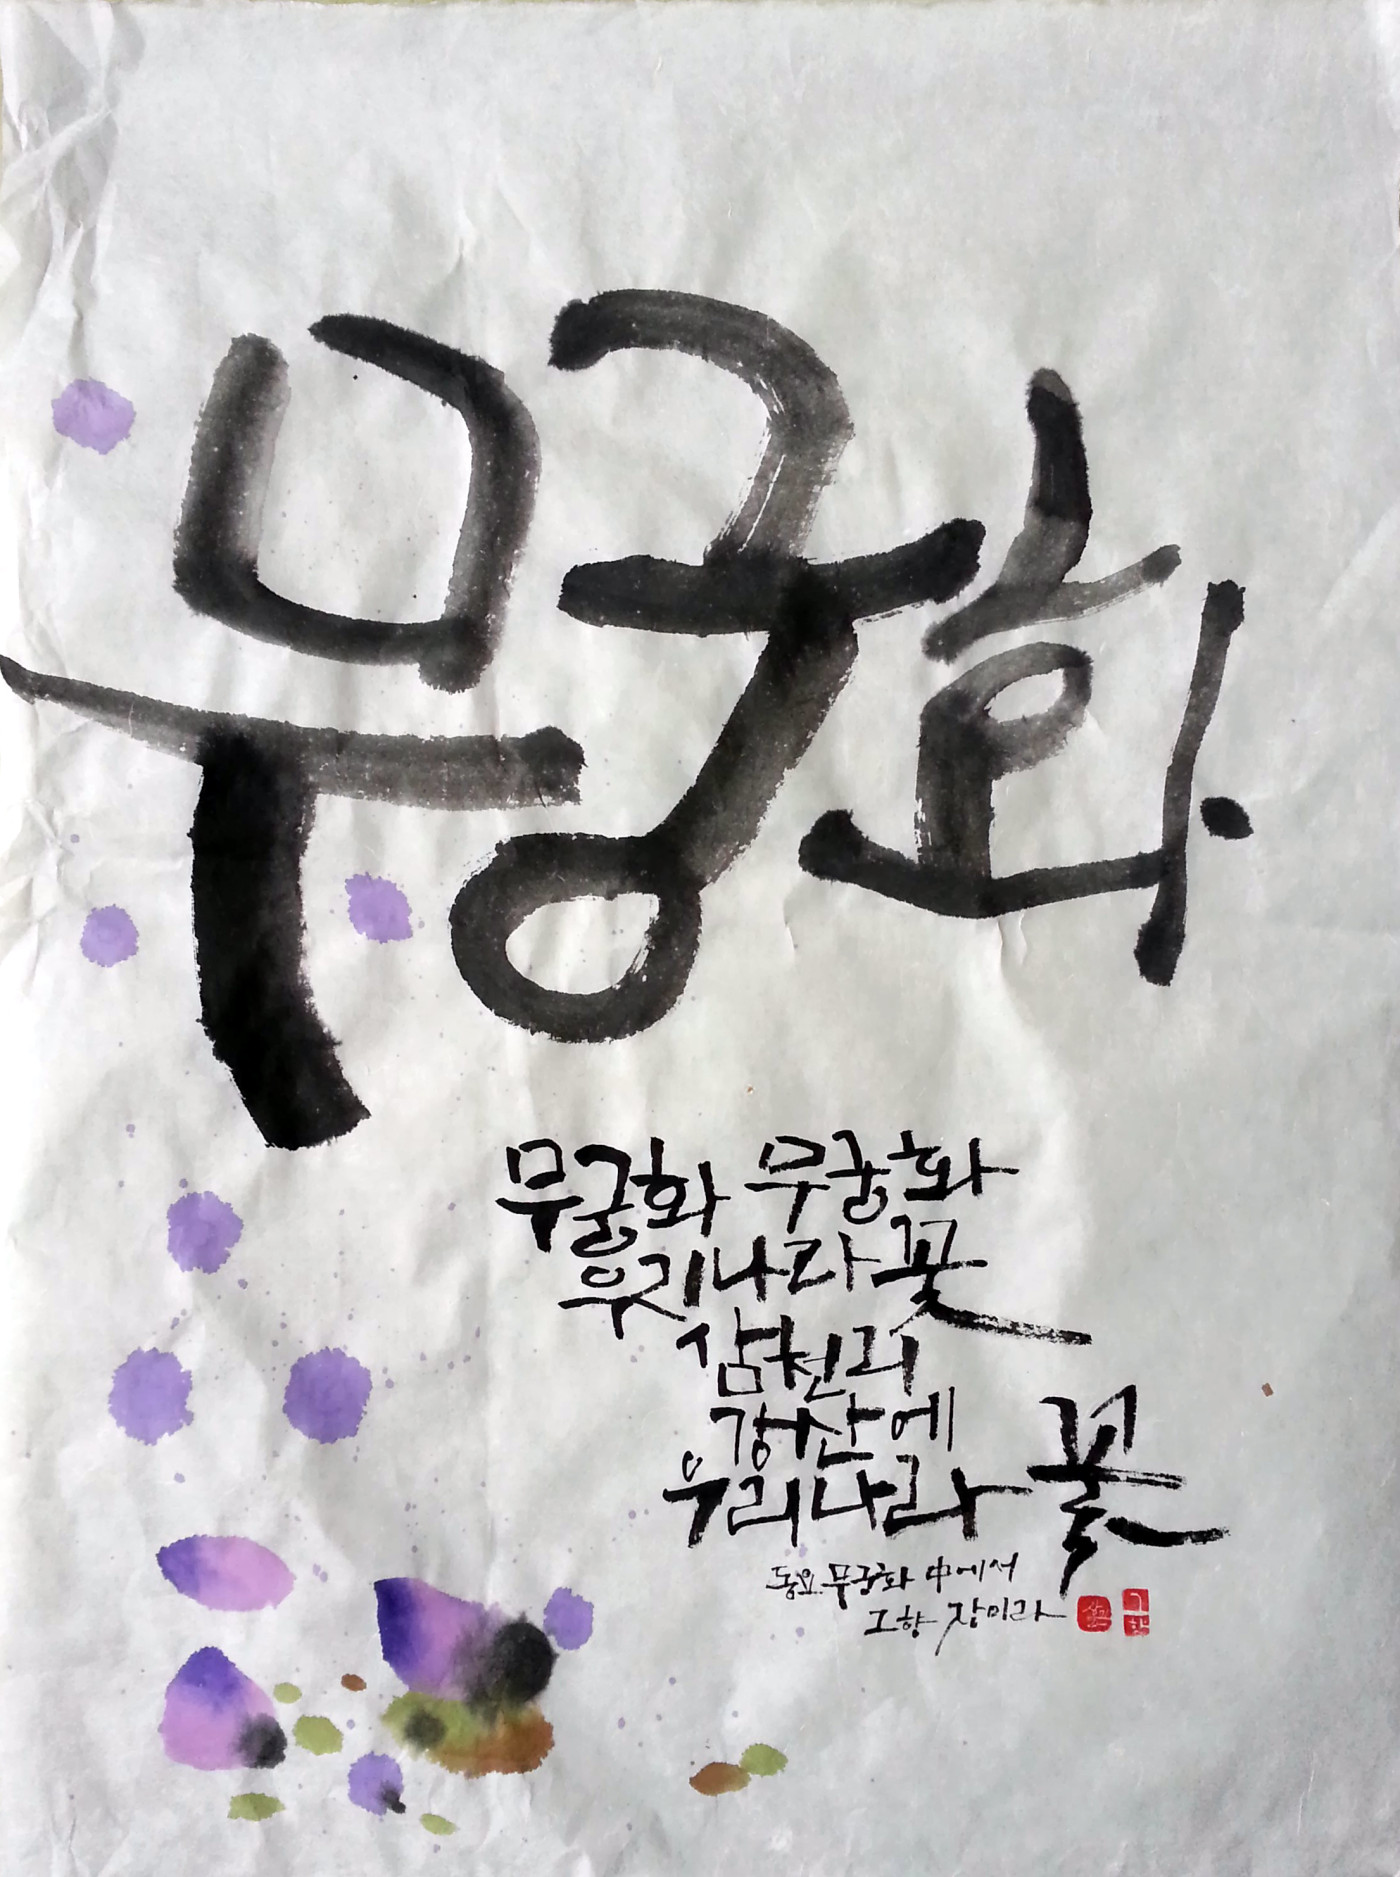 무궁화
무궁화 무궁화
우리나라꽃
삼천리
강산에
우리나라 꽃
동요 무궁화 中에서
그향 장미라